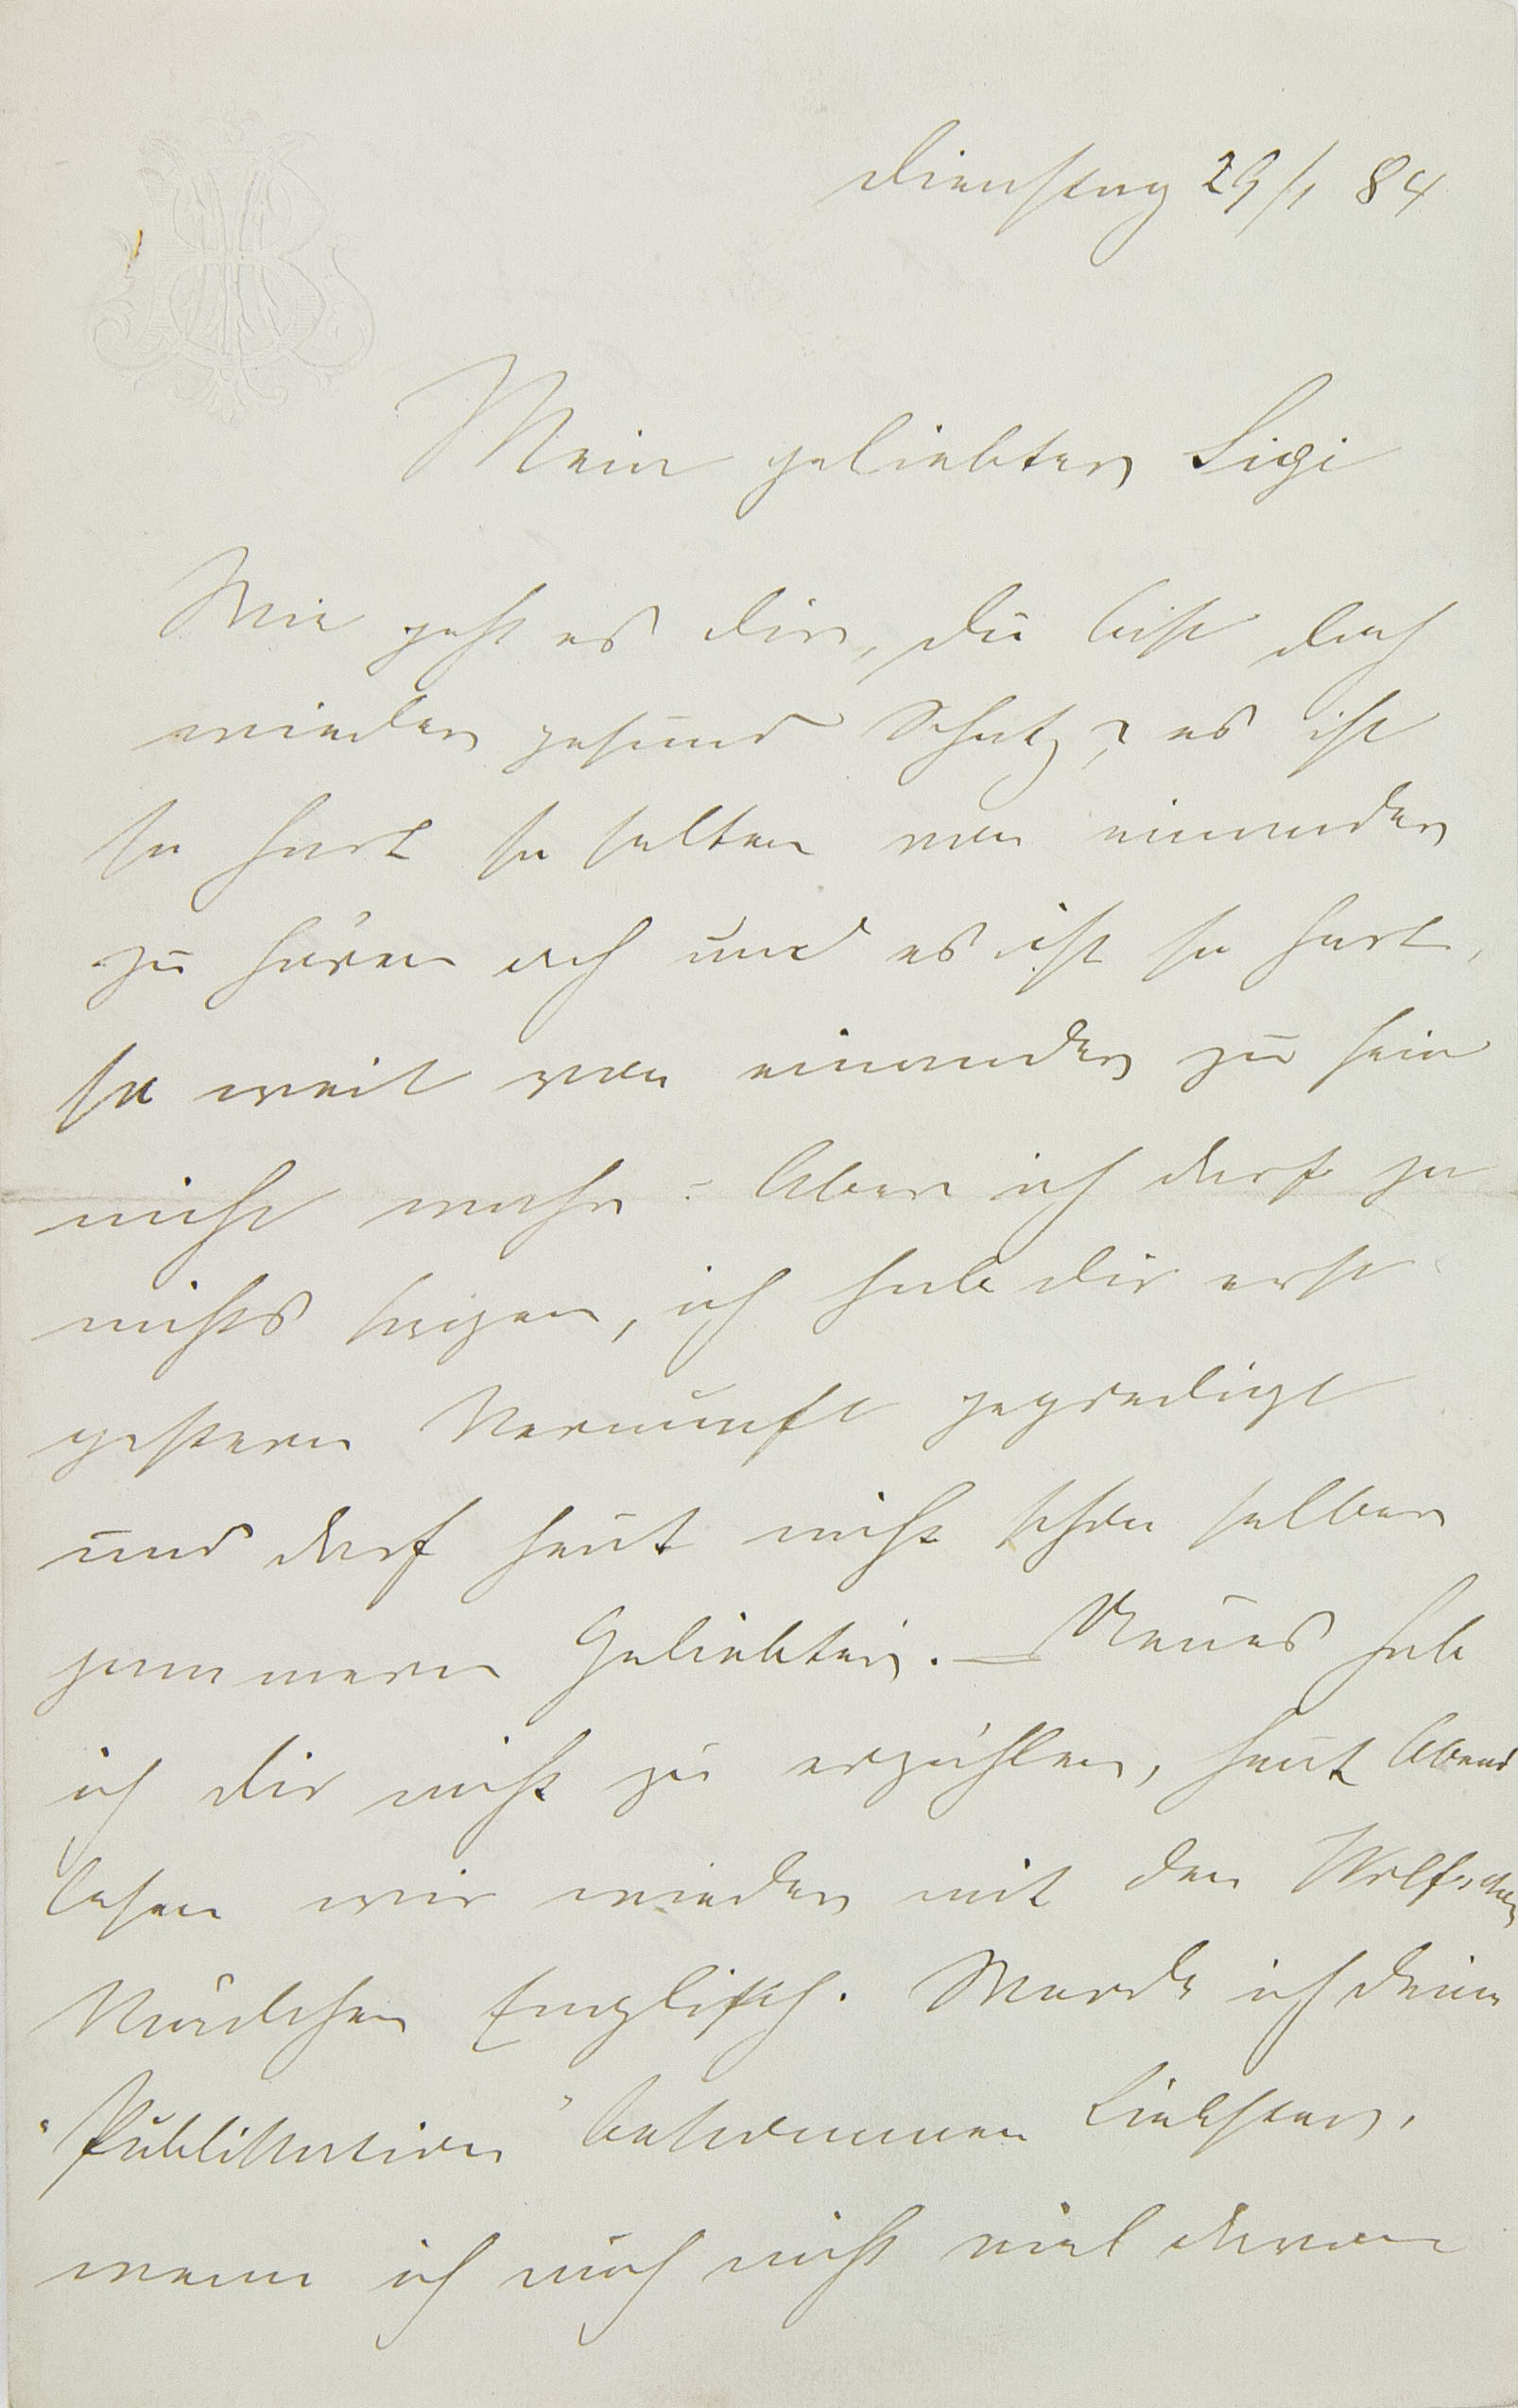 Dienstag 29/1 84
Mein geliebter Sigi
Wie geht es dir, du bist doch
wieder gesund Schatz? es ist
so hart so selten von einander
zu hören ach und es ist so hart,
so weit von einander zu sein
nicht wahr? Aber ich darf ja
nichts sagen, ich hab dir erst
gestern Vernunft gepredigt
und darf heut nicht schon selber
jammern Geliebter. — Neues hab
ich dir nicht zu erzählen, heut Abend
lesen wir wieder mit den
Mädchen Englisch. Werde ich deine
"Publikation" bekommen Liebster,
wenn ich auch nicht viel davon